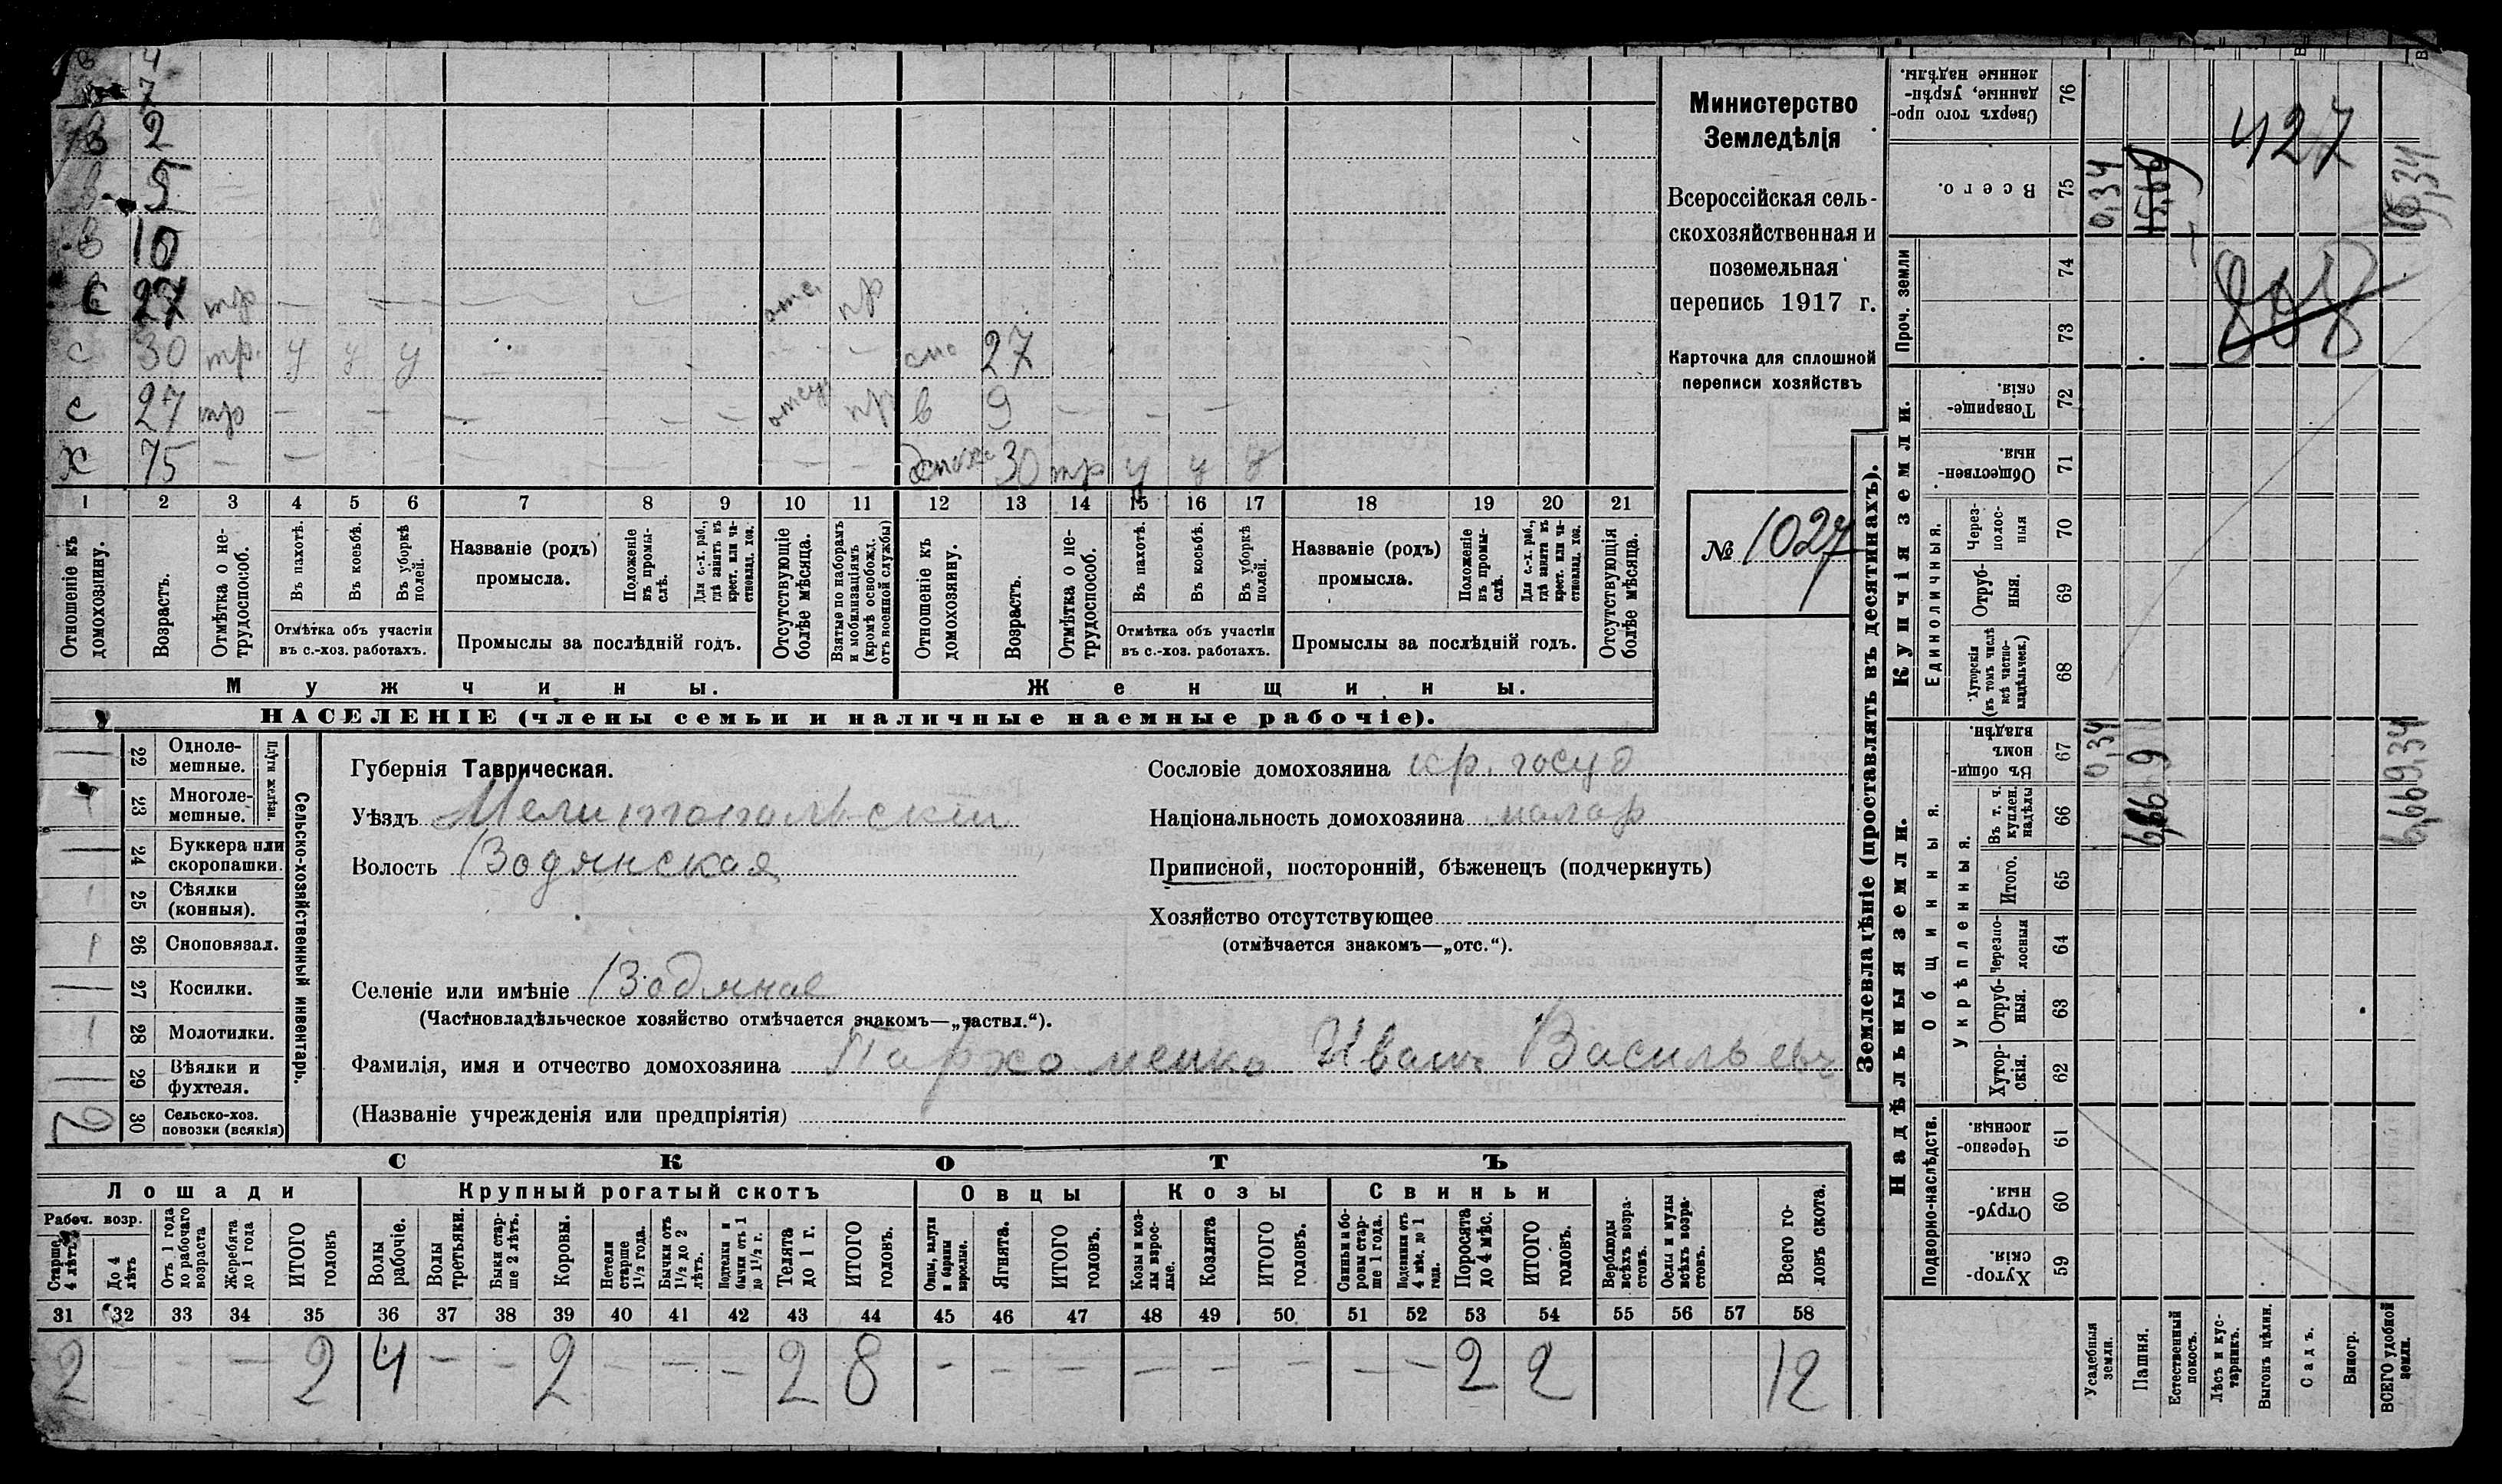 в 4
7
в 2
в 5
в 10
с 27 тр — — отс. пр
с 30 тр. у у у — — сно 27
с 27 тр — — — — — — отсу пр в 9 — — —
х 75 — — — — — — — 30 тр у у у
1 2 3 4 5 6 7 8 9 10 11 12 13 14 15 16 17 18 19 20 21
Отношеніе къ домохозяину.
Возрастъ.
Отмѣтка о нетрудоспособ.
Въ пахотѣ.
Въ косьбѣ.
Въ уборкѣ полей.
Отмѣтка объ участіи
въ с.-хоз. работахъ.
Названіе (родъ)
промысла.
Положеніе въ промыслѣ.
Для с.-х. раб., гдѣ занятъ въ крест. или частновлад. хоз.
Промыслы за послѣдній годъ.
Отсутствующіе болѣе мѣсяца.
Взятые по наборамъ и мобилизаціямъ (кромѣ освобожд. отъ военной службы)
Отношеніе къ домохозяину.
Возрастъ.
Отмѣтка о нетрудоспособ.
Въ пахотѣ.
Въ косьбѣ.
Въ уборкѣ полей.
Отмѣтка объ участіи
въ с.-хоз. работахъ.
Названіе (родъ)
промысла.
Положеніе въ промыслѣ.
Для с.-х. раб., гдѣ занята въ крест. или частновлад. хоз.
Промыслы за послѣдній годъ.
Отсутствующія болѣе мѣсяца.
Мужчины. Женщины.
НАСЕЛЕНІЕ (члены семьи и наличные наемные рабочіе).
Министерство
Земледѣлія
Всероссійская сель-
скохозяйственная и
поземельная
перепись 1917 г.
Карточка для сплошной
переписи хозяйствъ
№ 1027
22 Одноле-
мешные.
23 Многоле-
мешные.
Плуги желѣзн.
24 Буккера или
скоропашки.
25 Сѣялки
(конныя).
26 Сноповязал.
27 Косилки.
28 Молотилки.
29 Вѣялки и
фухтеля.
2 30 Сельско-хоз.
повозки (всякія)
Сельско-хозяйственный инвентарь.
Губернія Таврическая.
Уѣздъ Мелитопольскій
Волость Водянская
Селеніе или имѣніе Водяное
(Частновладѣльческое хозяйство отмѣчается знакомъ—„частвл.“).
Фамилія, имя и отчество домохозяина Пархоменко Иванъ Васильевъ
(Названіе учрежденія или предпріятія)
Сословіе домохозяина кр. госуд
Національность домохозяина малор
Приписной, посторонній, бѣженецъ (подчеркнуть)
Хозяйство отсутствующее
(отмѣчается знакомъ—„отс.“).
СКОТЪ
Лошади Крупный рогатый скотъ Овцы Козы Свиньи
Рабоч. возр.
Старше 4 лѣтъ
До 4 лѣтъ
Отъ 1 года до рабочаго возраста
Жеребята до 1 года
ИТОГО головъ
Волы рабочіе.
Волы третьяки.
Быки старше 2 лѣтъ.
Коровы.
Нетели старше 1½ года.
Бычки отъ 1½ до 2 лѣтъ.
Подтелки и бычки отъ 1 до 1½ г.
Телята до 1 г.
ИТОГО головъ.
Овцы, валухи и бараны взрослые.
Ягнята.
ИТОГО головъ.
Козы и козлы взрослые.
Козлята
ИТОГО головъ.
Свиньи и боровы старше 1 года.
Подсвинки отъ 4 мѣс. до 1 года.
Поросята до 4 мѣс.
ИТОГО головъ.
Верблюды всѣхъ возрастовъ.
Ослы и мулы всѣхъ возрастовъ.
Всего головъ скота.
31 32 33 34 35 36 37 38 39 40 41 42 43 44 45 46 47 48 49 50 51 52 53 54 55 56 57 58
2 — — — 2 4 — — 2 — — — 2 8 — — — — — — — — 2 2 12
Землевладѣніе (проставлять въ десятинахъ).
Надѣльныя земли. Купчія земли. Проч. земли
Подворно-наслѣдств.
Общинныя.
Укрѣпленныя.
Единоличныя.
Сверхъ того проданные, укрѣпленные надѣлы. 76
Всего. 75
74
73
Товарищескія. 72
Общественныя. 71
Черезполосныя 70
Отрубныя. 69
Хуторскія (въ томъ числѣ всѣ частновладѣльческ.) 68
Въ общинномъ владѣн. 67
Въ т. ч. куплен. надѣлы 66
Итого. 65
Черезполосныя 64
Отрубныя. 63
Хуторскія. 62
Черезполосныя. 61
Отрубныя. 60
Хуторскія. 59
Усадебныя земли.
Пашня.
Естественный покосъ.
Лѣсъ и кустарникъ.
Выгонъ цѣлин.
Садъ.
Виногр.
ВСЕГО удобной земли.
0,34
427
0,34